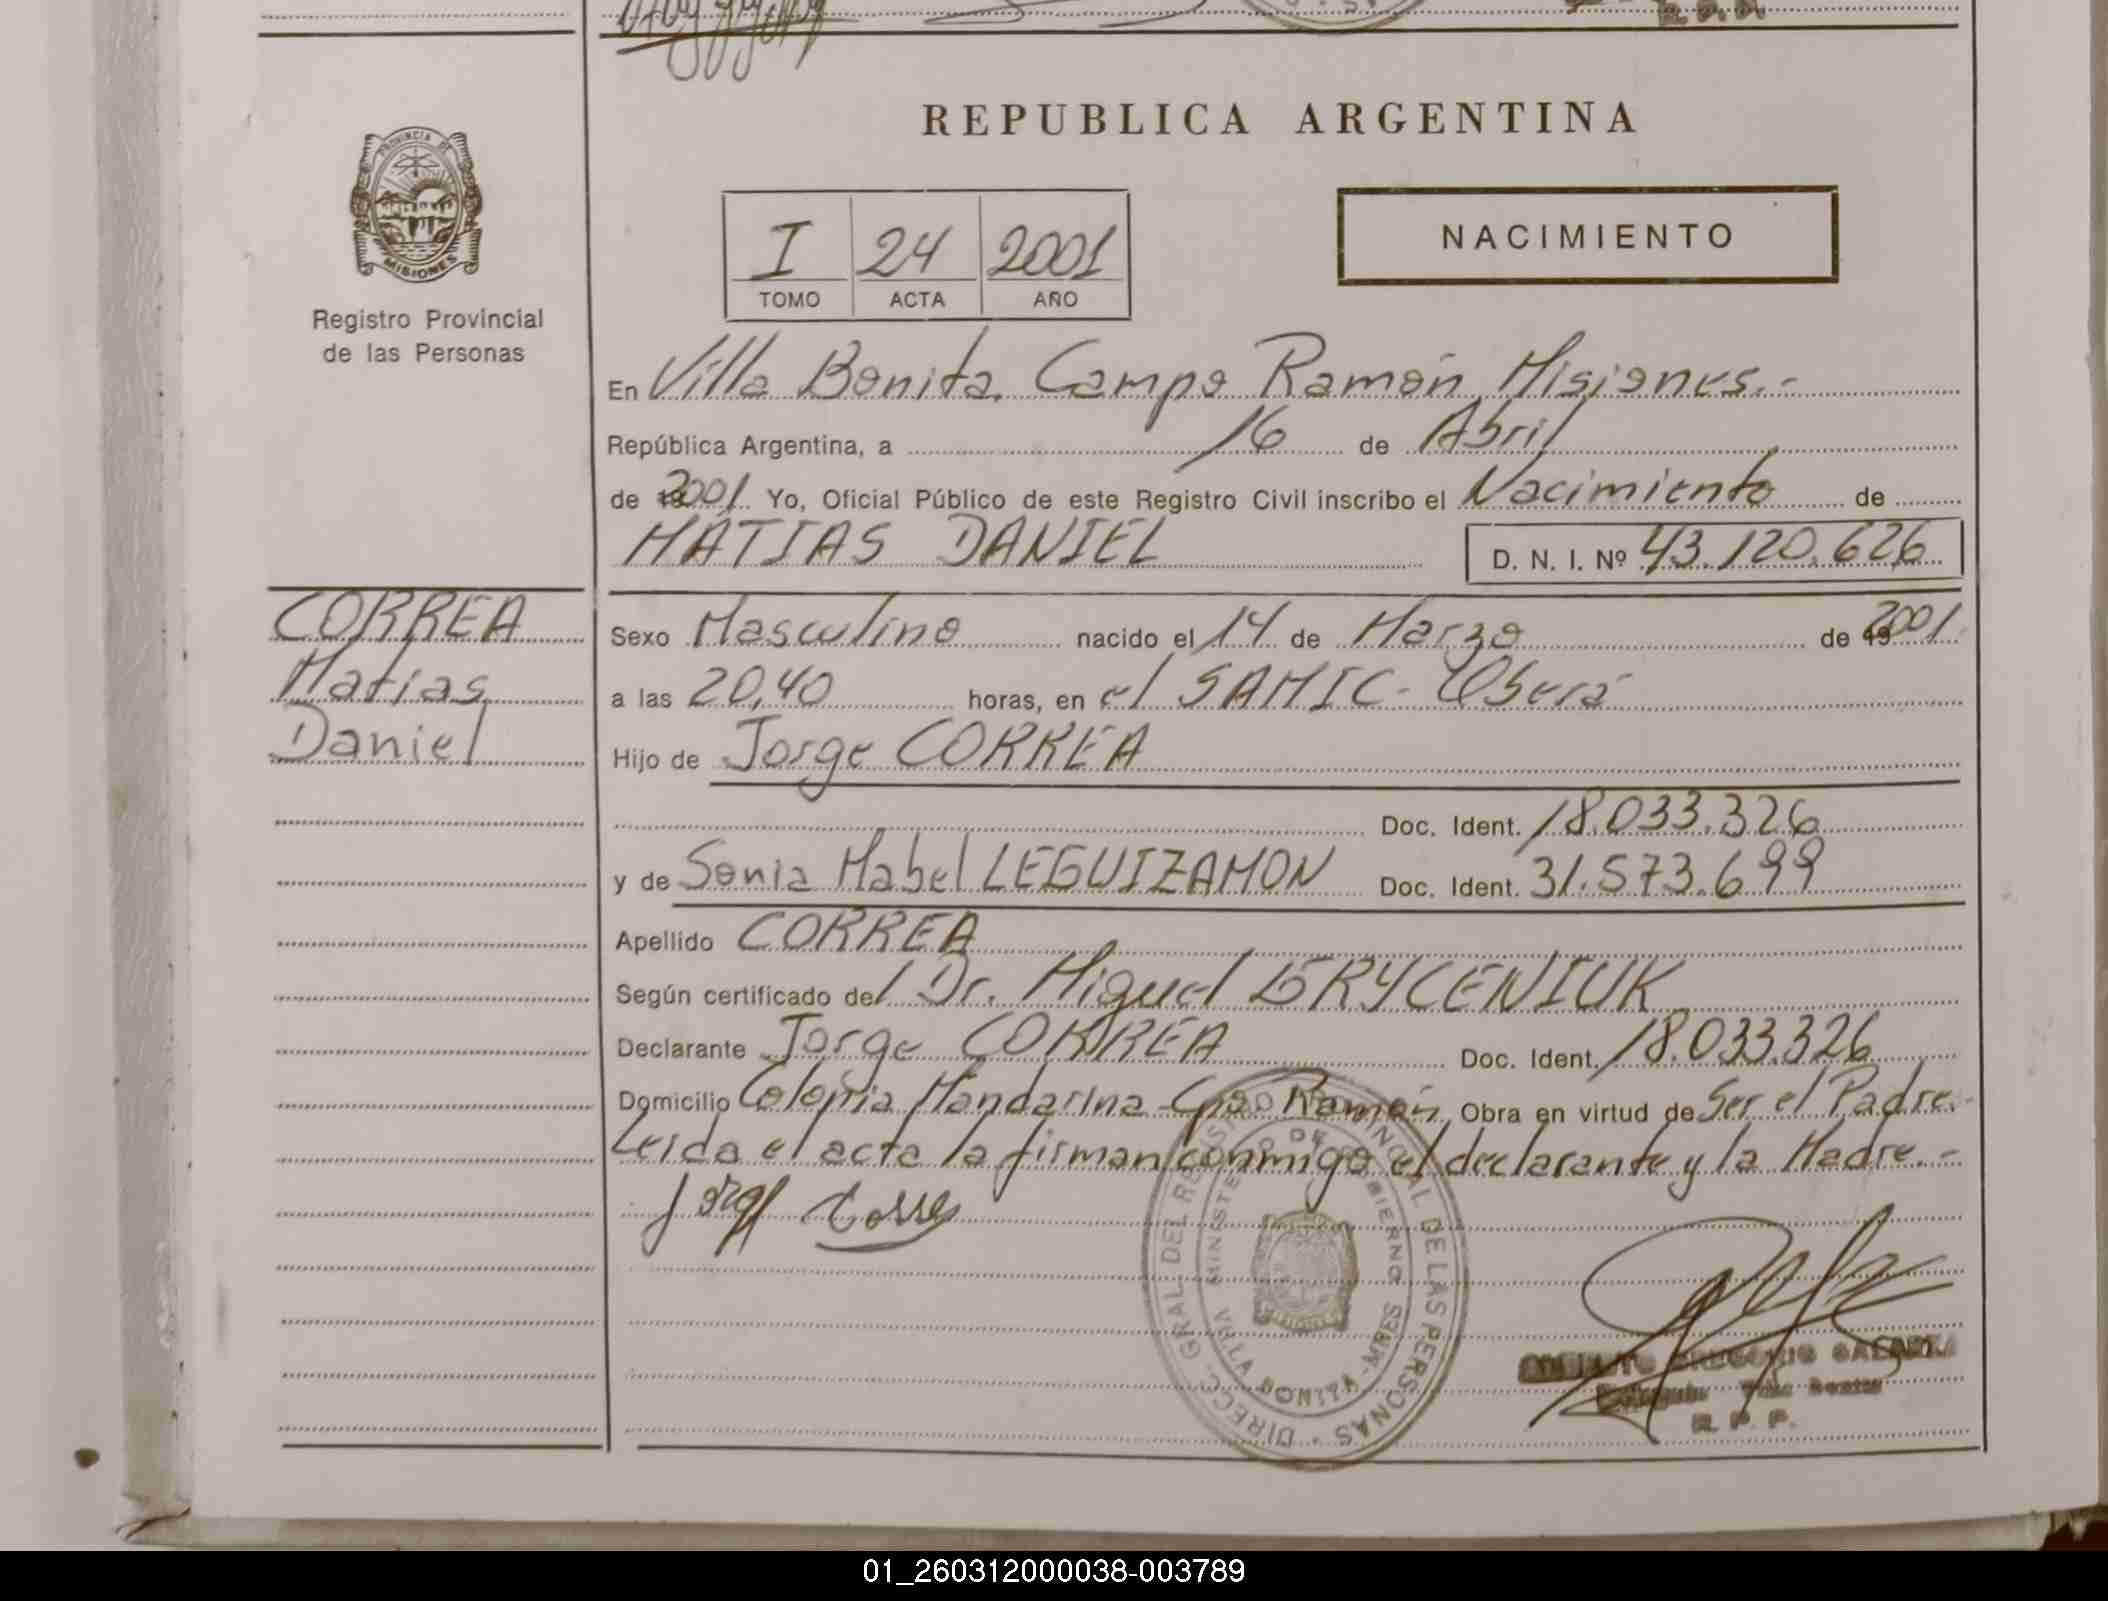 R. P. P.
REPUBLICA ARGENTINA
PROVINCIA DE
MISIONES
Registro Provincial
de las Personas
I 24 2001
TOMO ACTA AÑO
NACIMIENTO
En Villa Bonita, Campo Ramón, Misiones.-
República Argentina, a 16 de Abril
de 2001. Yo, Oficial Público de este Registro Civil inscribo el Nacimiento de
MATIAS DANIEL D. N. I. Nº 43.120.626
CORREA
Matias
Daniel
Sexo Masculino nacido el 14 de Marzo de 2001
a las 20,40 horas, en el SAMIC- Oberá
Hijo de Jorge CORREA
Doc. Ident. 18.033.326
y de Sonia Mabel LEGUIZAMON Doc. Ident. 31.573.699
Apellido CORREA
Según certificado del Dr. Miguel GRYCENIUK
Declarante Jorge CORREA Doc. Ident. 18.033.326
Domicilio Colonia Mandarina-Cpo. Ramón Obra en virtud de Ser el Padre.-
Leida el acta la firman conmigo el declarante y la Madre.-
Jorge Correa
DIRECC. GRAL. DEL REGISTRO PROVINCIAL DE LAS PERSONAS
MINISTERIO DE GOBIERNO
VILLA BONITA - MNES
R. P. P.
01_260312000038-003789